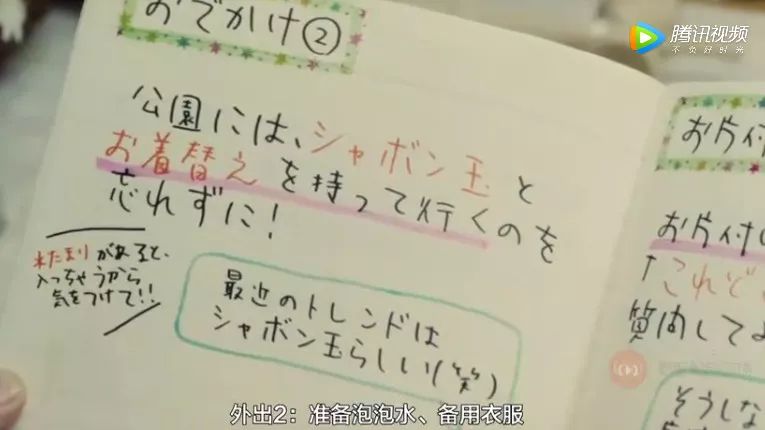 おでかけ②
公園には、シャボン玉と
お着替えを持って行くのを
忘れずに!
水たまりがあると、
入っちゃうから
気をつけて!!
最近のトレンドは
シャボン玉らしい(笑)
お片付
お片付
↑これぞ
質問してよ
そうしな
腾讯视频
不负好时光
外出2：准备泡泡水、备用衣服